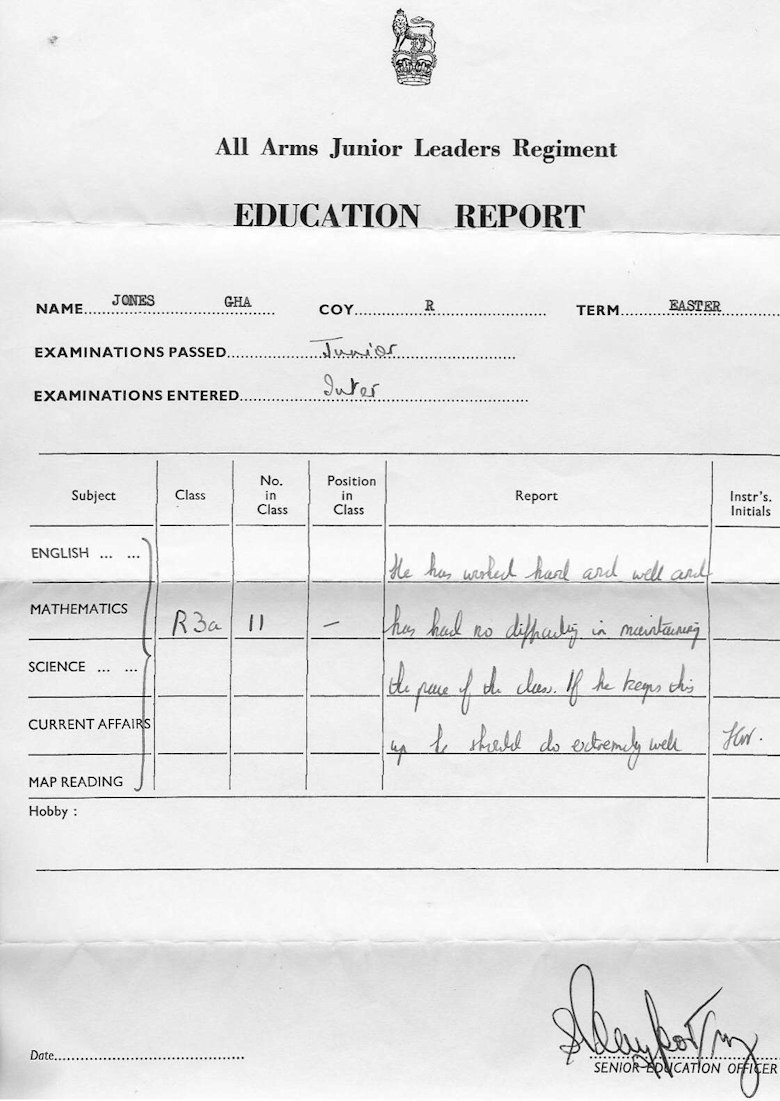 All Arms Junior Leaders Regiment
EDUCATION REPORT
NAME JONES GHA COY R TERM EASTER
EXAMINATIONS PASSED Junior
EXAMINATIONS ENTERED Inter
Subject Class No. in Class Position in Class Report Instr's. Initials
ENGLISH ... ...
He has worked hard and well and
MATHEMATICS R3a 11 –
has had no difficulty in maintaining
SCIENCE ... ...
the pace of the class. If he keeps this
CURRENT AFFAIRS
up he should do extremely well
MAP READING
Hobby :
Date
SENIOR EDUCATION OFFICER